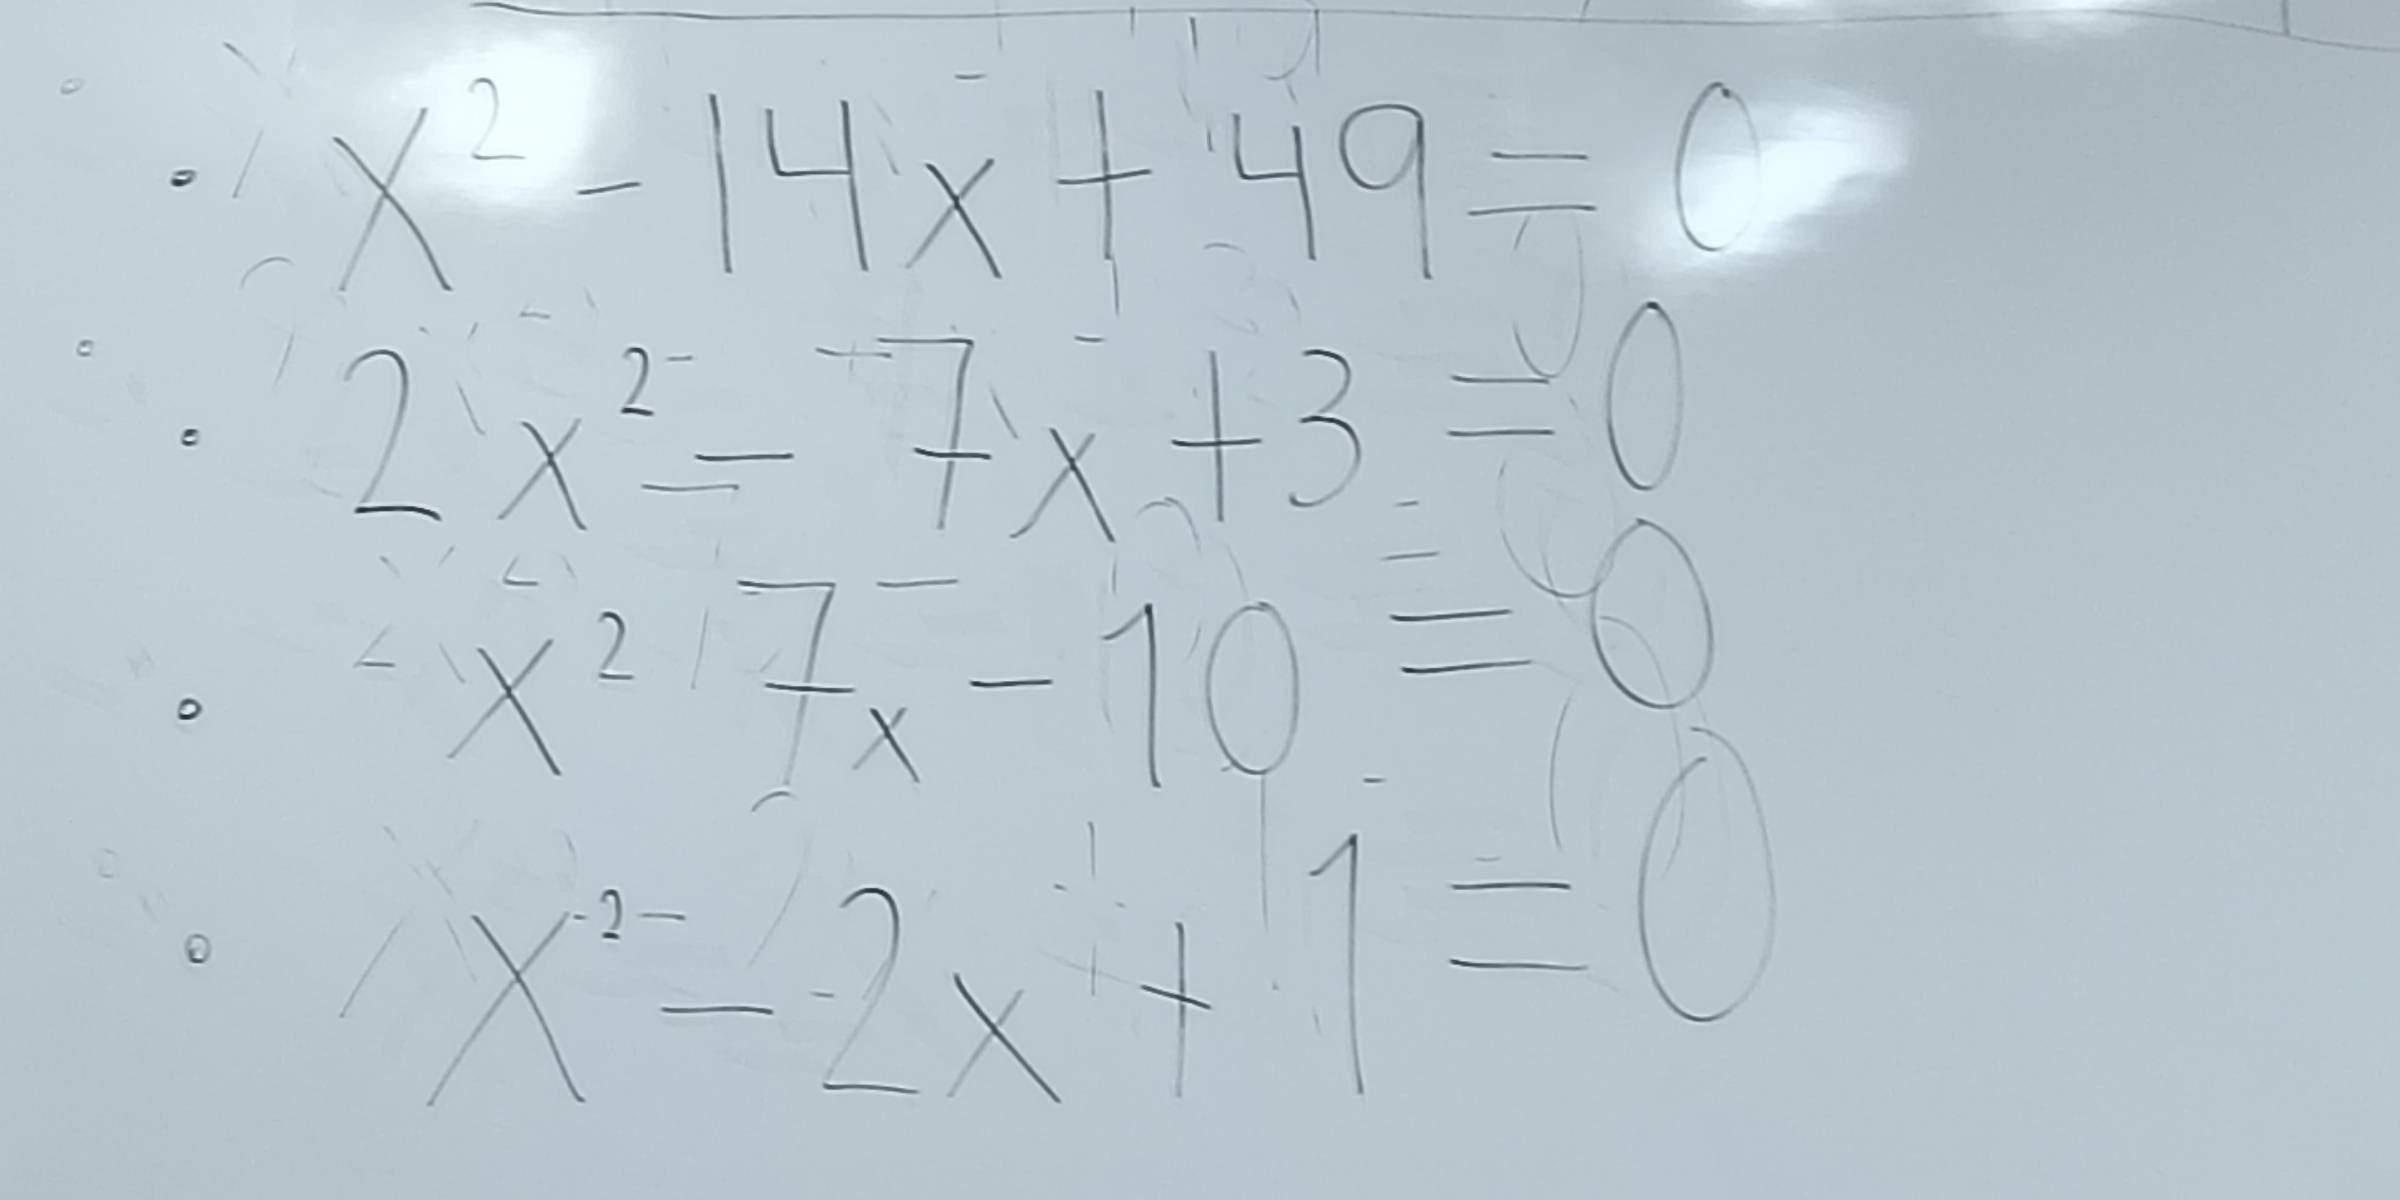 x² - 14x + 49 = 0
2x² = 7x + 3 = 0
x² 7x - 10 = 0
x² - 2x + 1 = 0